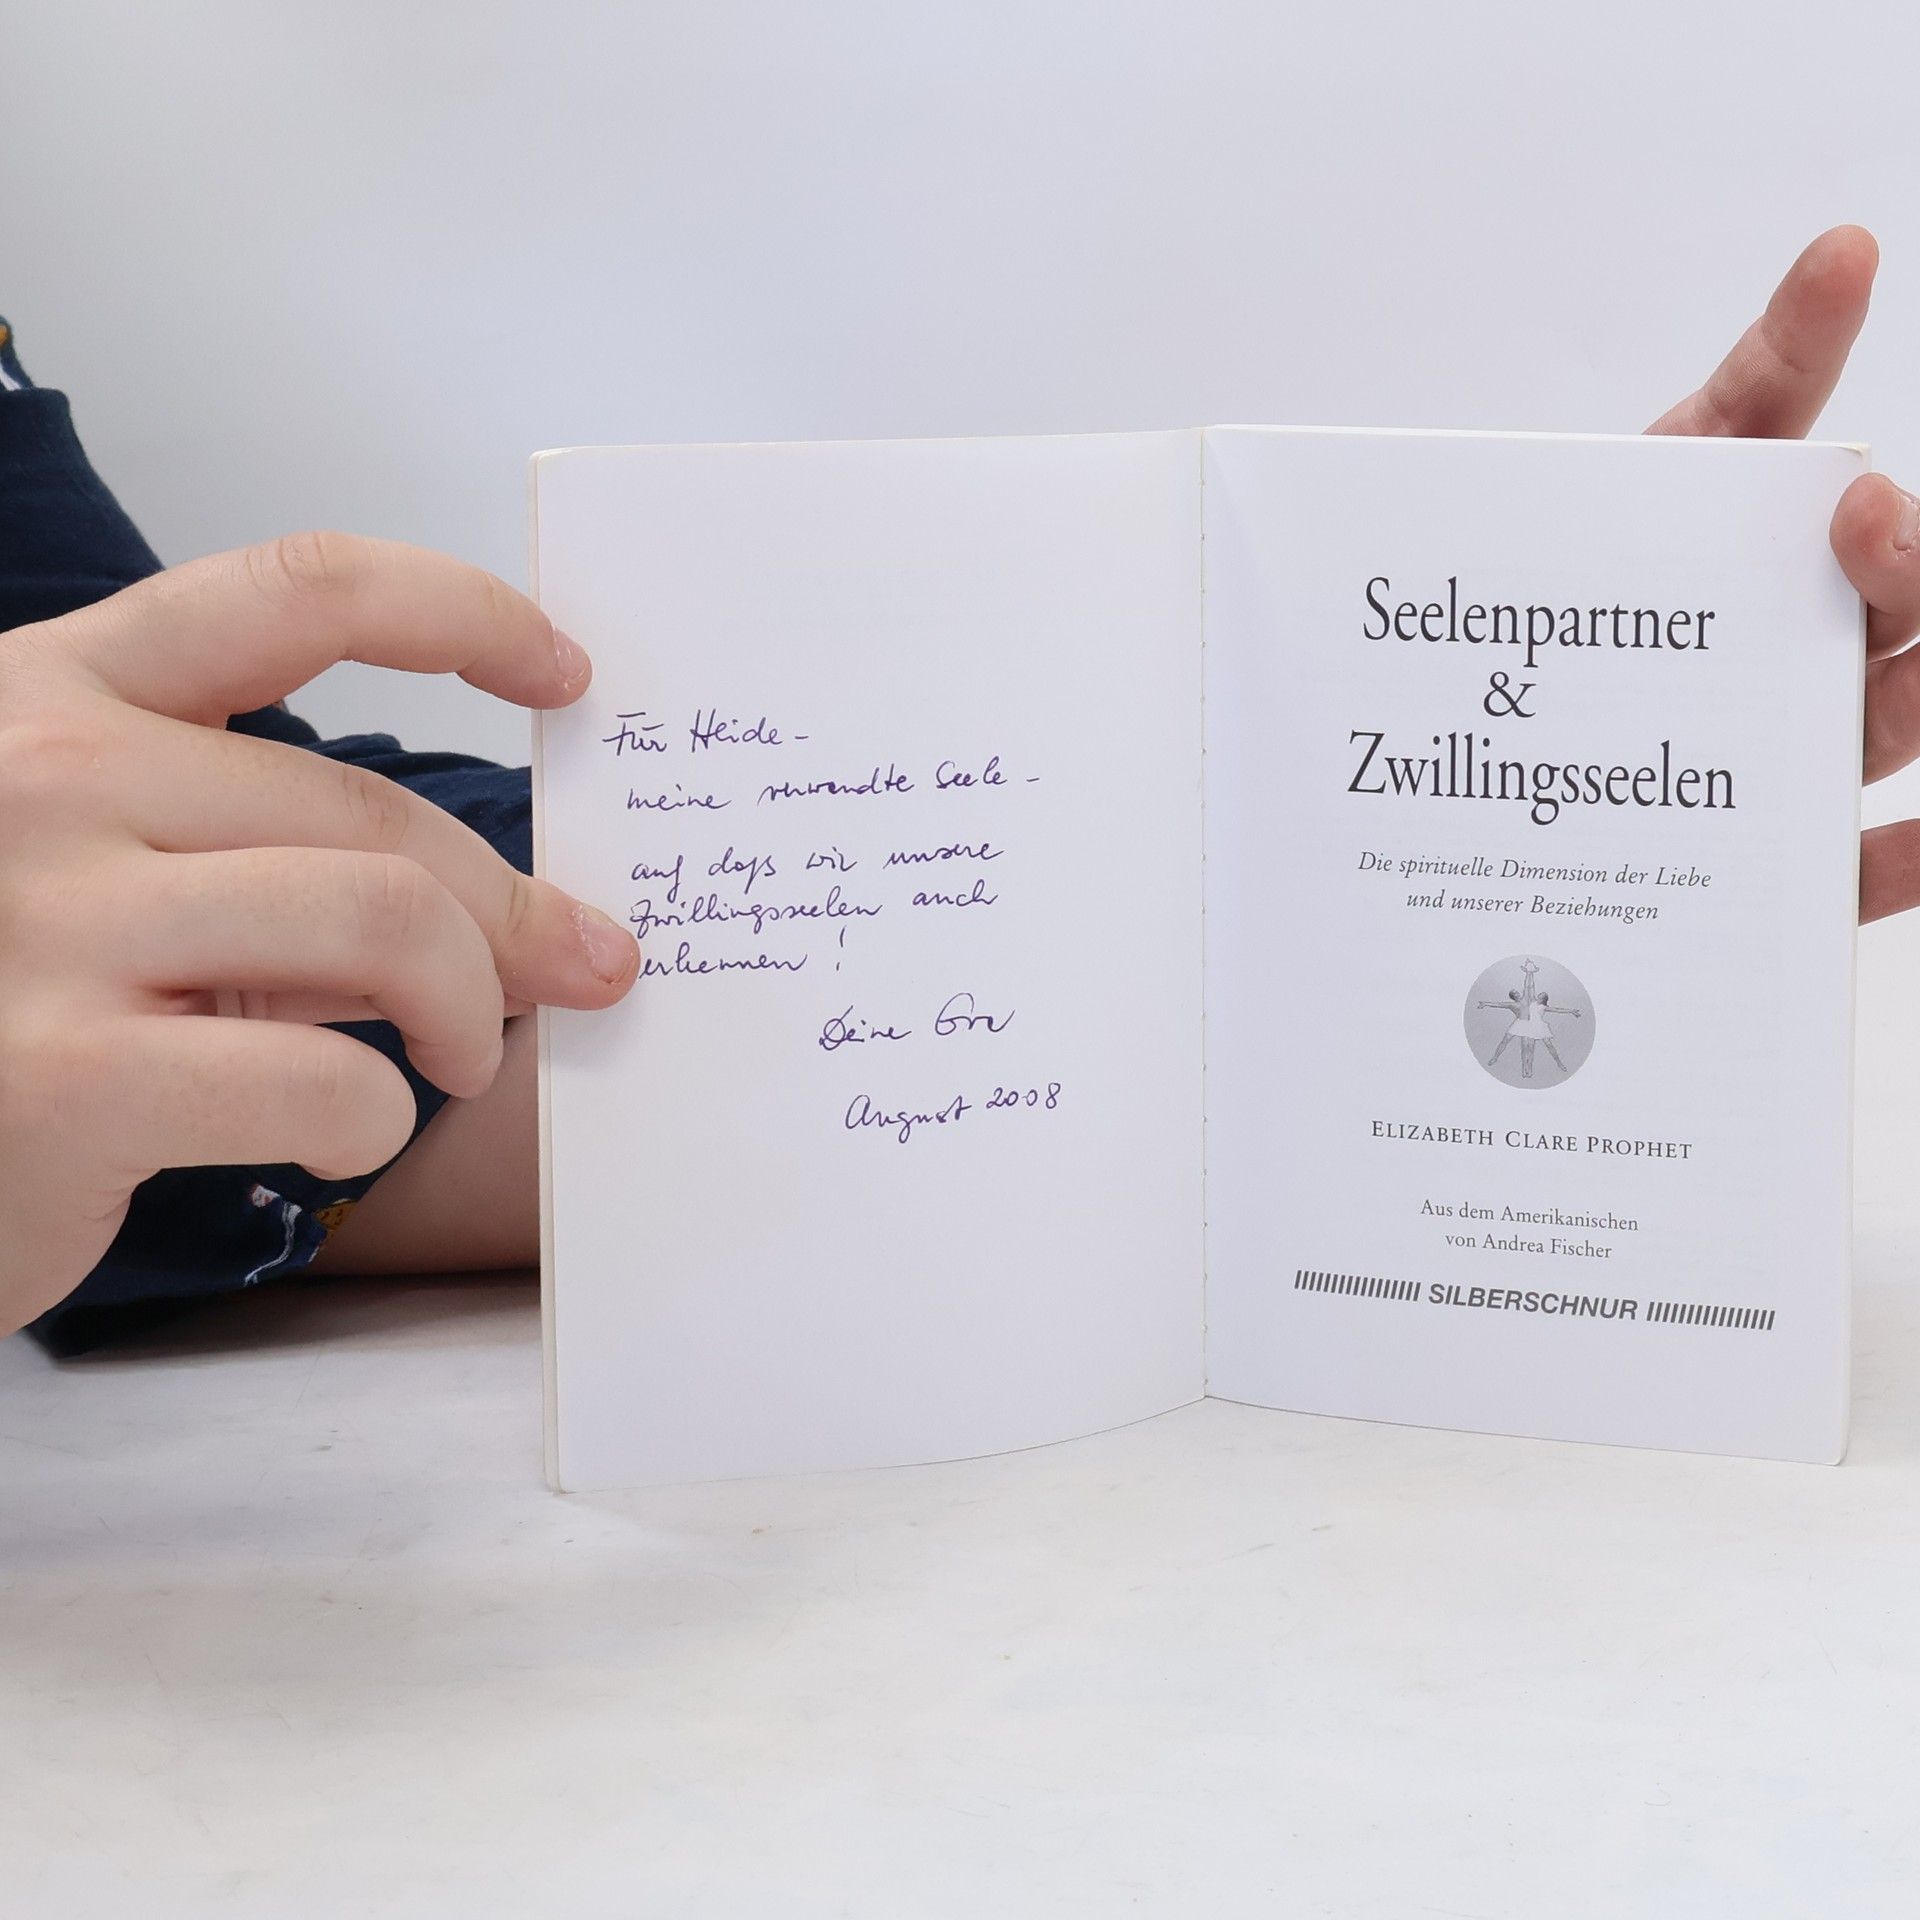 Für Heide -
meine verwandte Seele -
auf daß wir unsere
Zwillingsseelen auch
erkennen !
Deine
August 2008
Seelenpartner
&
Zwillingsseelen
Die spirituelle Dimension der Liebe
und unserer Beziehungen
ELIZABETH CLARE PROPHET
Aus dem Amerikanischen
von Andrea Fischer
SILBERSCHNUR